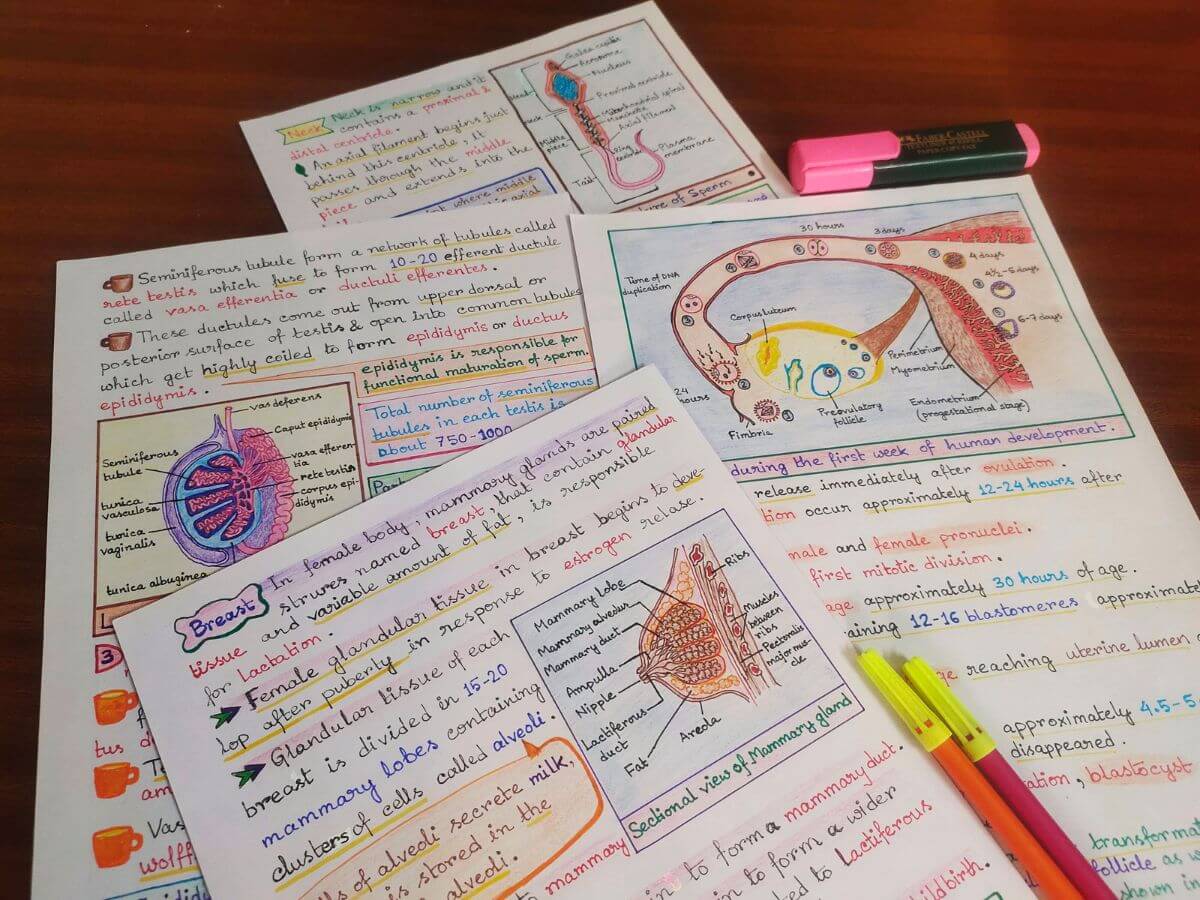 Neck
Neck is narrow and it
contains a proximal &
distal centriole.
An axial filament begins just
behind this centriole, It
passes through the middle
piece and extends into the
where middle
axial
Acrosome
Nucleus
Proximal centriole
Mitochondrial spiral
Manchette
Axial filament
Ring
centriole
Plasma
membrane
Middle
piece
Tail
of Sperm
FABER-CASTELL
TEXTLINER
Seminiferous tubule form a network of tubules called
rete testis which fuse to form 10-20 efferent ductule
called vasa efferentia or ductuli efferentes.
These ductules come out from upper dorsal or
posterior surface of testis & open into common tubules
which get highly coiled to form epididymis or ductus
epididymis.
epididymis is responsible for
functional maturation of sperm.
Total number of seminiferous
tubules in each testis is
about 750-1000
vas deferens
Caput epididymis
vasa efferen-
tia
rete testis
corpus epi-
didymis
Seminiferous
tubule
tunica
vasculosa
tunica
vaginalis
tunica albuginea
3
tus
am
Vas
wolff
30 hours
3 days
4 days
4½-5 days
6-7 days
Time of DNA
duplication
Corpus luteum
24
hours
Fimbria
Preovulatory
follicle
Perimetrium
Myometrium
Endometrium
(progestational stage)
during the first week of human development.
release immediately after ovulation.
tion occur approximately 12-24 hours after
male and female pronuclei.
first mitotic division.
age approximately 30 hours of age.
aining 12-16 blastomeres approximat
ge reaching uterine lumen
approximately 4.5-5
disappeared.
ation, blastocyst
transformat
follicle as w
shown in
Breast
In female body, mammary glands are paired
strures named breast, that contain glandular
tissue and variable amount of fat, is responsible
for Lactation.
Female glandular tissue in breast begins to deve-
lop after puberly in response to estrogen relase.
Glandular tissue of each
breast is divided in 15-20
mammary lobes containing
clusters of cells called alveoli.
lls of alveoli secrete milk,
is stored in the
alveoli.
Mammary lobe
Mammary alveolus
Mammary duct
Ampulla
Nipple
Lactiferous
duct
Fat
Areola
Ribs
Muscles
between
ribs
Pectoralis
major mus-
cle
Sectional view of Mammary gland
to form a mammary duct.
mammary
in to form a wider
ted to Lactiferous
childbirth.